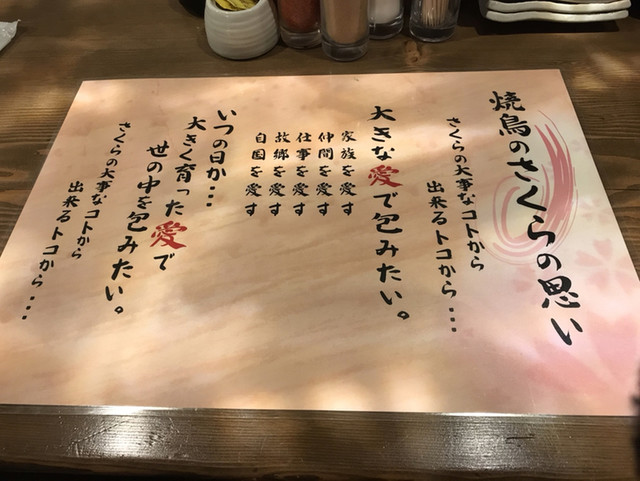 焼鳥のさくらの思い
さくらの大事なコトから
出来るトコから・・・
大きな愛で包みたい。
家族を愛す
仲間を愛す
仕事を愛す
故郷を愛す
自国を愛す
いつの日か・・・
大きく育った愛で
世の中を包みたい。
さくらの大事なコトから
出来るトコから・・・